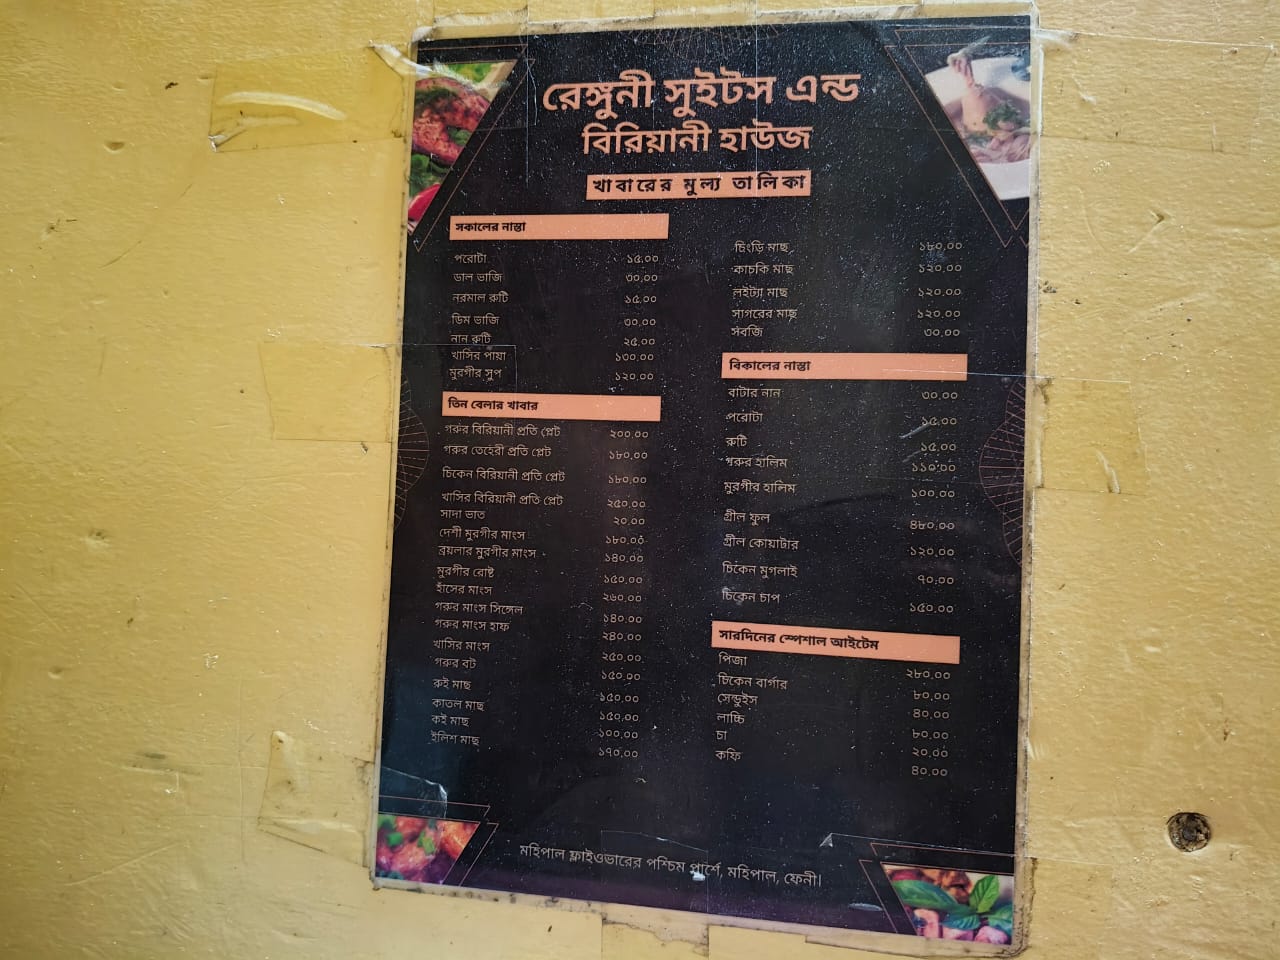 রেঙ্গুনী সুইটস এন্ড
বিরিয়ানী হাউজ
খাবারের মুল্য তালিকা
সকালের নাস্তা
পরোটা ১৫.০০
ডাল ভাজি ৩০.০০
নরমাল রুটি ১৫.০০
ডিম ভাজি ৩০.০০
নান রুটি ২৫.০০
খাসির পায়া ১৩০.০০
মুরগীর সুপ ১২০.০০
তিন বেলার খাবার
গরুর বিরিয়ানী প্রতি প্লেট ২০০.০০
গরুর তেহেরী প্রতি প্লেট ১৮০.০০
চিকেন বিরিয়ানী প্রতি প্লেট ১৮০.০০
খাসির বিরিয়ানী প্রতি প্লেট ২৫০.০০
সাদা ভাত ২০.০০
দেশী মুরগীর মাংস ১৮০.০০
ব্রয়লার মুরগীর মাংস ১৪০.০০
মুরগীর রোষ্ট ১৫০.০০
হাঁসের মাংস ২৬০.০০
গরুর মাংস সিঙ্গেল ১৪০.০০
গরুর মাংস হাফ ২৪০.০০
খাসির মাংস ২৫০.০০
গরুর বট ১৫০.০০
রুই মাছ ১৫০.০০
কাতল মাছ ১৫০.০০
কই মাছ ১০০.০০
ইলিশ মাছ ১৭০.০০
চিংড়ি মাছ ১৮০.০০
কাচকি মাছ ১২০.০০
লইট্যা মাছ ১২০.০০
সাগরের মাছ ১২০.০০
সবজি ৩০.০০
বিকালের নাস্তা
বাটার নান ৩০.০০
পরোটা ১৫.০০
রুটি ১৫.০০
গরুর হালিম ১১০.০০
মুরগীর হালিম ১০০.০০
গ্রীল ফুল ৪৮০.০০
গ্রীল কোয়াটার ১২০.০০
চিকেন মুগলাই ৭০.০০
চিকেন চাপ ১৫০.০০
সারদিনের স্পেশাল আইটেম
পিজা ২৮০.০০
চিকেন বার্গার ৮০.০০
সেন্ডুইস ৪০.০০
লাচ্চি ৮০.০০
চা ২০.০০
কফি ৪০.০০
মহিপাল ফ্লাইওভারের পশ্চিম পার্শে, মহিপাল, ফেনী।